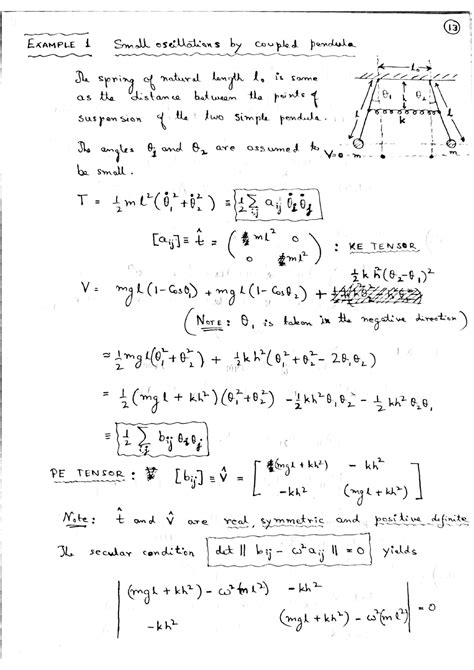 13
EXAMPLE 1 Small oscillations by coupled pendula
The spring of natural length l₀ is same
as the distance between the points of
suspension of the two simple pendula.
The angles θ₁ and θ₂ are assumed to
be small.
l₀
θ₁ θ₂
l k l
V=0 m m
T = ½ m l² (θ̇₁² + θ̇₂²) ≡ ½ Σ_ij a_ij θ̇_i θ̇_j
[a_ij] ≡ t̂ = ( ml² 0
0 ml² ) : KE TENSOR
V = mgl (1-Cosθ₁) + mgl (1-Cosθ₂) + ½ k h² (θ₂-θ₁)²
(NOTE: θ₁ is taken in the negative direction)
≈ ½ mgl (θ₁² + θ₂²) + ½ kh² (θ₁² + θ₂² - 2θ₁θ₂)
= ½ (mgl + kh²) (θ₁² + θ₂²) - ½ kh² θ₁θ₂ - ½ kh² θ₂θ₁
≡ ½ Σ_ij b_ij θ_i θ_j
PE TENSOR : [b_ij] ≡ V̂ = [ (mgl + kh²) - kh²
-kh² (mgl + kh²) ]
Note: t̂ and V̂ are real, symmetric and positive definite
The secular condition det || b_ij - ω² a_ij || = 0 yields
| (mgl + kh²) - ω²(ml²) -kh²
-kh² (mgl + kh²) - ω²(ml²) | = 0